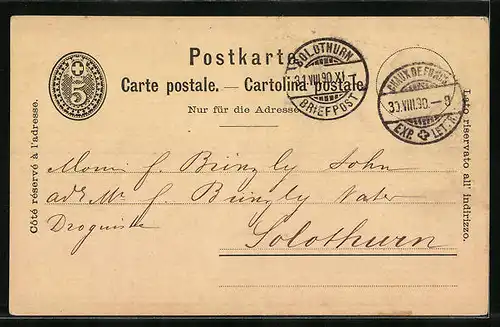 Postkarte.
Carte postale. — Cartolina postale.
Nur für die Adresse.
5
SOLOTHURN
31.VIII.90.XI
BRIEFPOST
CHAUX DE FONDS
30.VIII.90.—9
EXP. LET. R.
Côté réservé à l'adresse.
Lato riservato all' indirizzo.
J. Bünzly Sohn
adr Mr J. Bünzly Vater
Droguiste
Solothurn